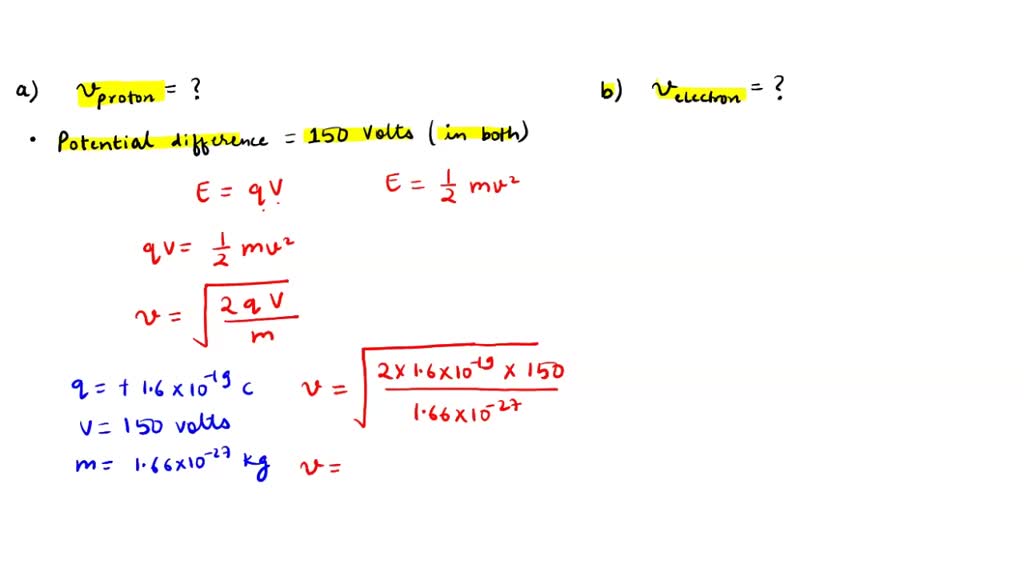 a) v proton = ?
b) v electron = ?
• Potential difference = 150 Volts (in both)
E = qV E = 1/2 mv²
qV = 1/2 mv²
v = √(2qV/m)
q = + 1.6 × 10⁻¹⁹ C
v = √(2 × 1.6 × 10⁻¹⁹ × 150 / 1.66 × 10⁻²⁷)
V = 150 volts
m = 1.66 × 10⁻²⁷ kg
v =